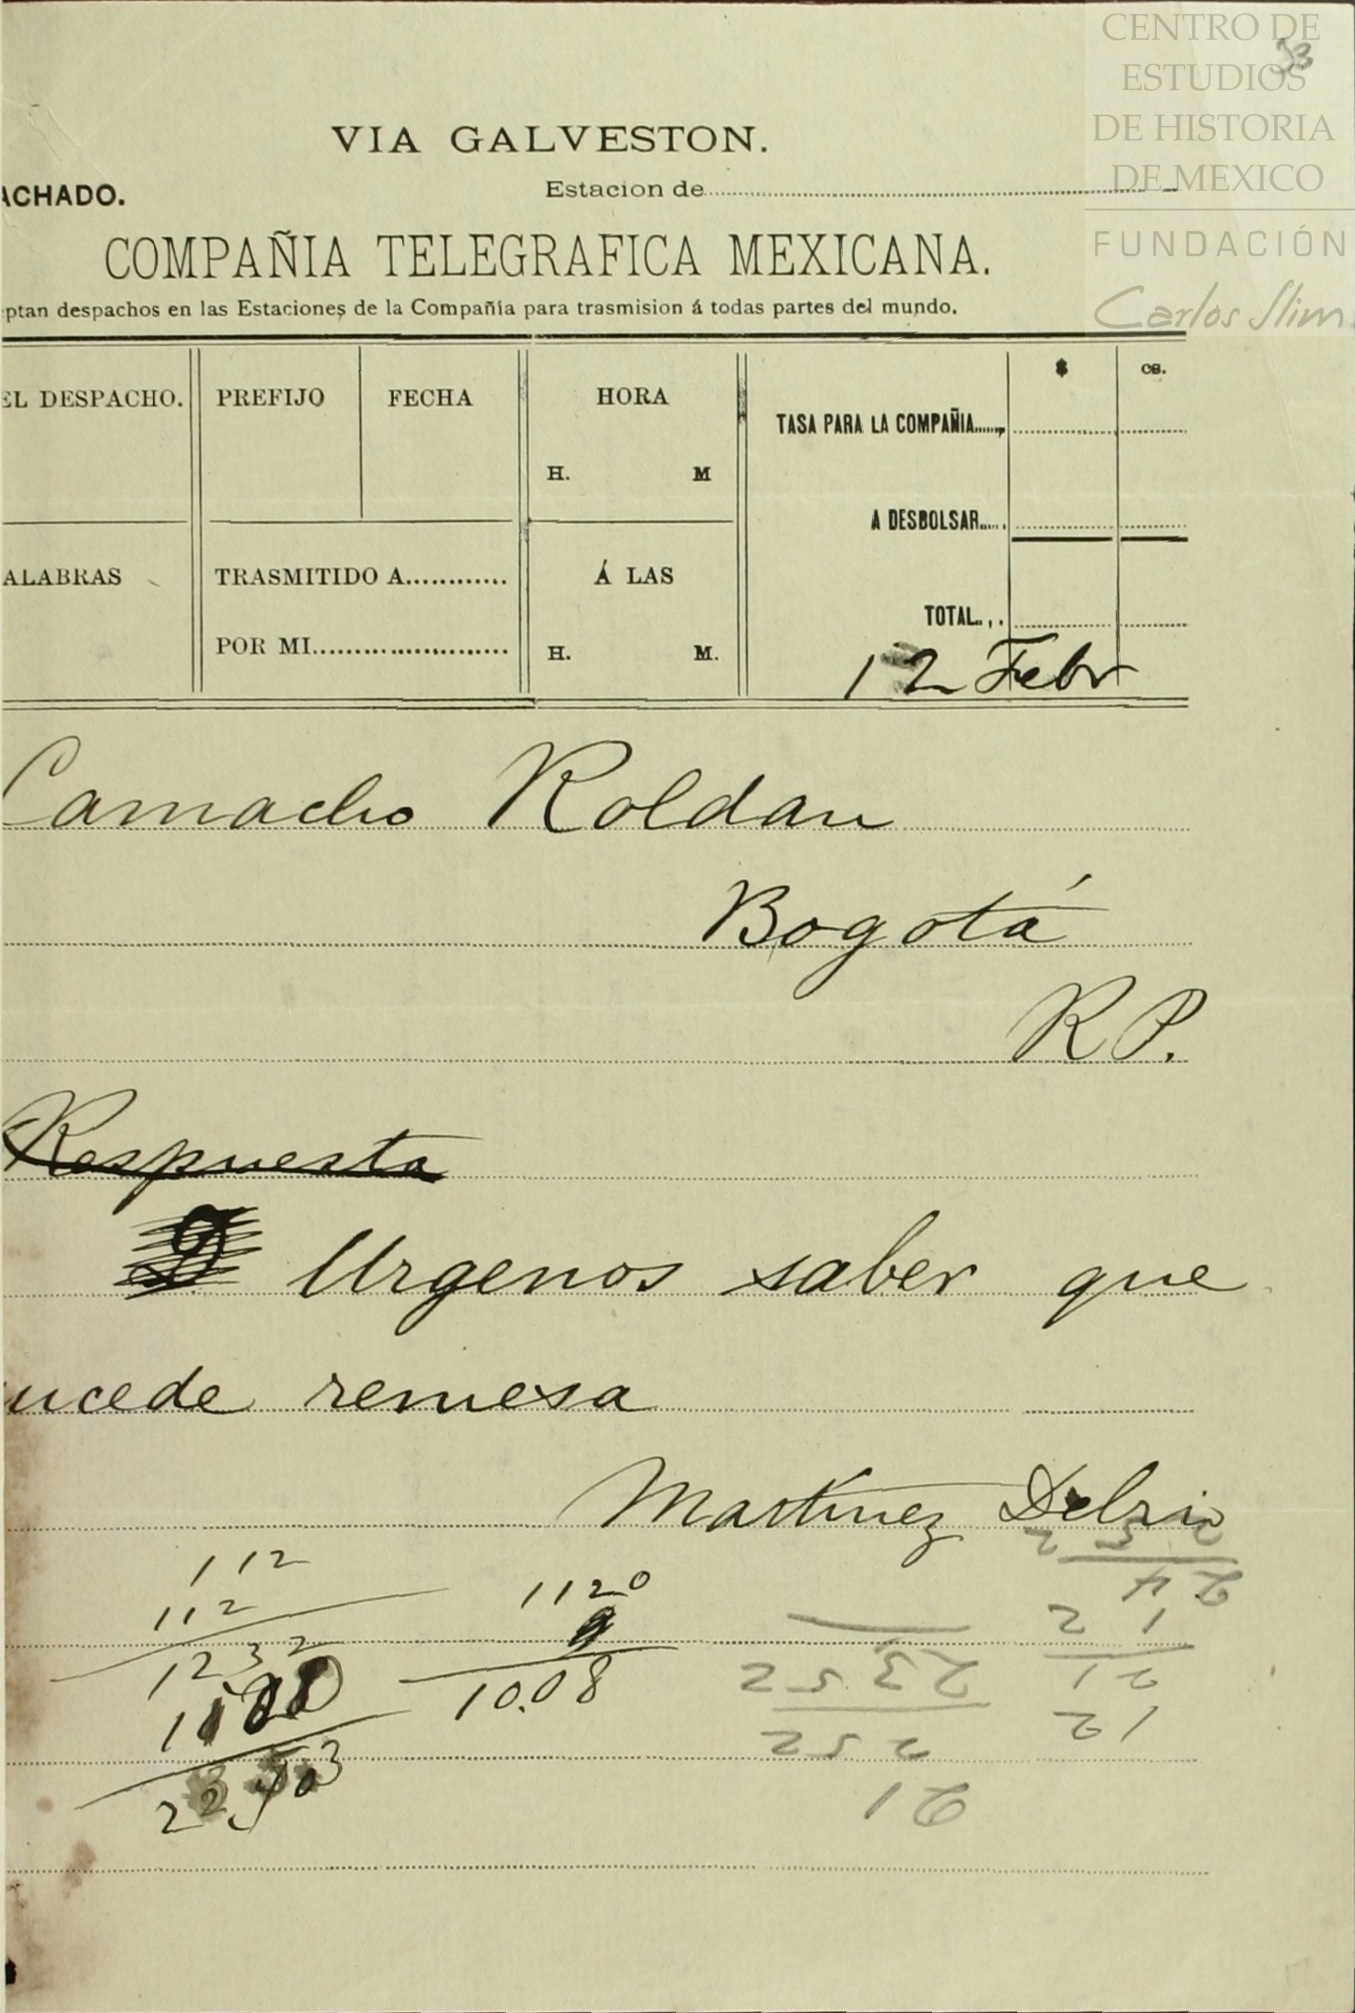 CENTRO DE
ESTUDIOS
DE HISTORIA
DE MEXICO
FUNDACIÓN
Carlos Slim
33
VIA GALVESTON.
ACHADO.
Estacion de
COMPAÑIA TELEGRAFICA MEXICANA.
ptan despachos en las Estaciones de la Compañia para trasmision á todas partes del mundo.
EL DESPACHO. PREFIJO FECHA HORA $ cs.
TASA PARA LA COMPAÑIA
H. M
A DESBOLSAR
ALABRAS TRASMITIDO A Á LAS
TOTAL
POR MI H. M.
12 Febr
Camacho Roldan
Bogotá
R P.
Respuesta
Urgenos saber que
ucede remesa
Martinez Delrio
112
112
1232
1120
9
10.08
252
24
12
21
12
2352
252
21